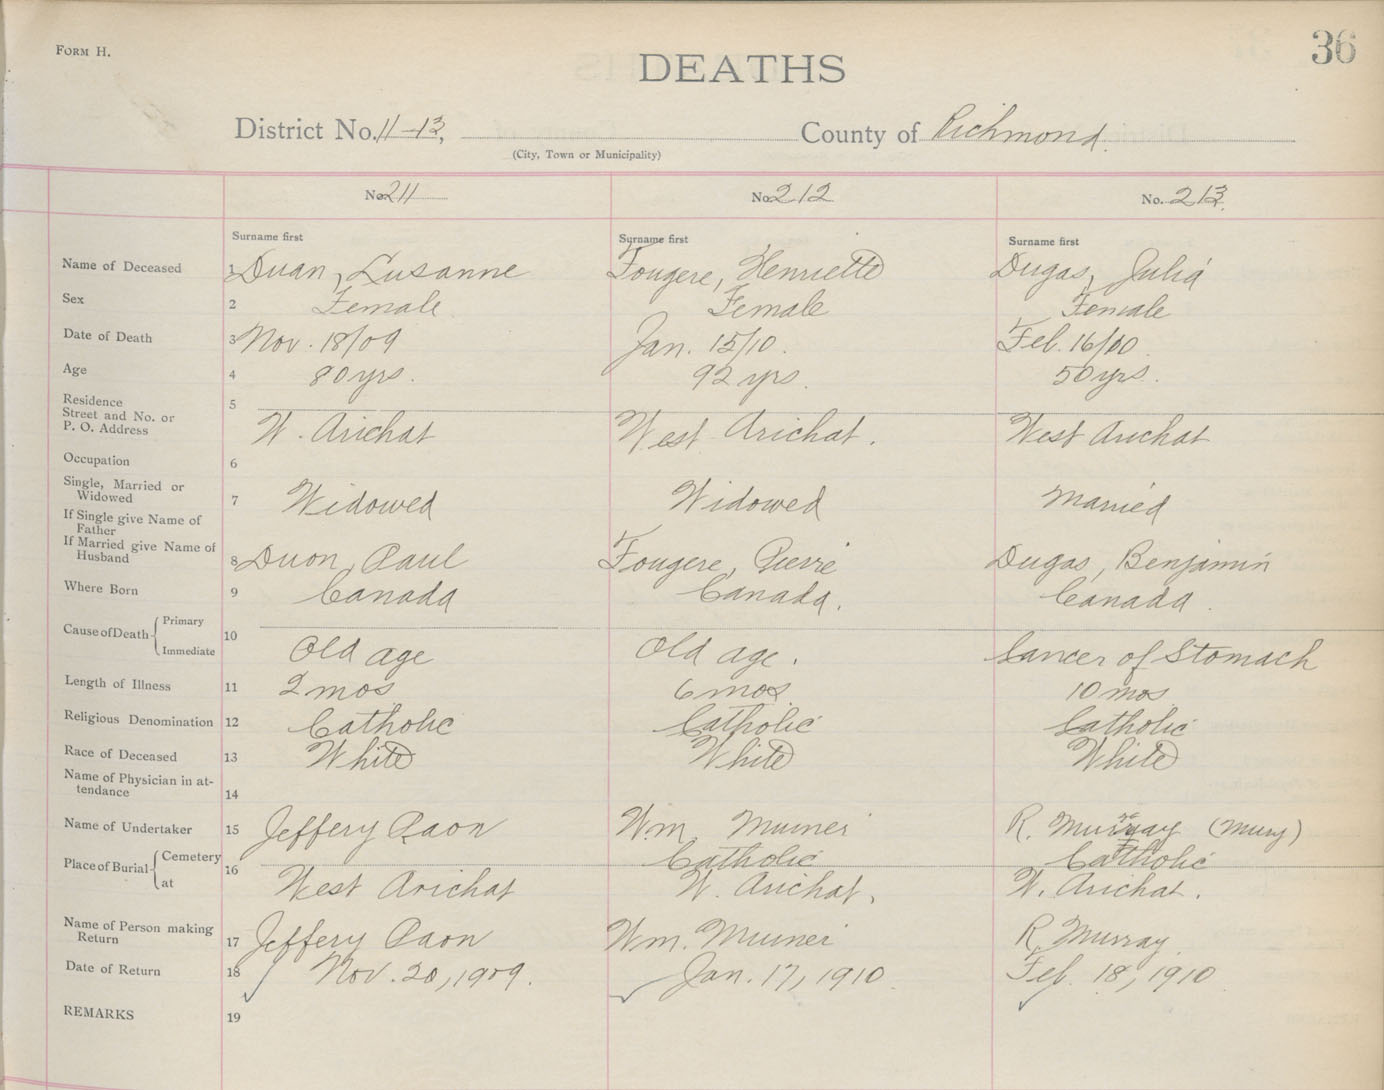 FORM H.
36
DEATHS
District No. 11-13, County of Richmond.
(City, Town or Municipality)
No. 211 No. 212 No. 213.
Surname first Surname first Surname first
Name of Deceased 1 Duan, Lusanne Fougere, Henriette Dugas, Julia
Sex 2 Female Female Female
Date of Death 3 Nov. 18/09 Jan. 15/10. Feb. 16/10.
Age 4 80 yrs. 92 yrs. 50 yrs.
Residence 5
Street and No. or
P. O. Address W. Arichat West Arichat. West Arichat
Occupation 6
Single, Married or
Widowed 7 Widowed Widowed Married
If Single give Name of
Father
If Married give Name of
Husband 8 Duon, Paul Fougere, Pierre Dugas, Benjamin
Where Born 9 Canada Canada. Canada.
Cause of Death Primary 10
Immediate Old age Old age. Cancer of Stomach
Length of Illness 11 2 mos 6 mos 10 mos
Religious Denomination 12 Catholic Catholic Catholic
Race of Deceased 13 White White White
Name of Physician in at-
tendance 14
Name of Undertaker 15 Jeffery Paon Wm. R. Murray
Place of Burial Cemetery 16 Catholic Catholic
at West Arichat W. Arichat. W. Arichat.
Name of Person making
Return 17 Jeffery Paon Wm. R. Murray.
Date of Return 18 Nov. 20, 1909. Jan. 17, 1910 Feb. 18, 1910
REMARKS 19